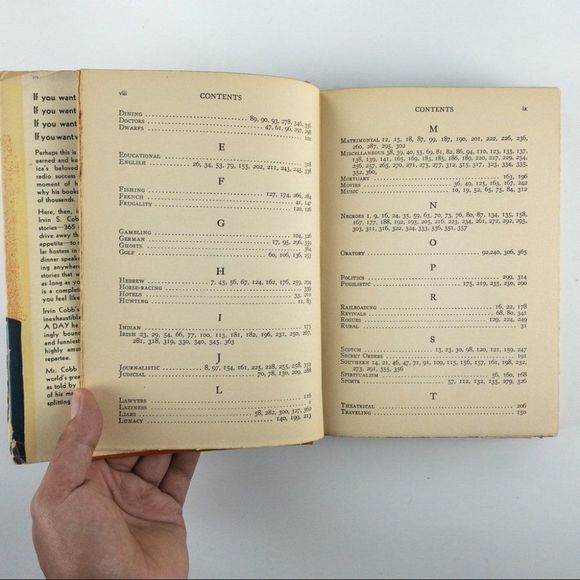 If you want
If you want
If you want
If you want
Perhaps this is
erned and ke
ica's beloved
radio success
moment of h
why his books
of thousands.
Here, then, is
Irvin S. Cobb
stories—365
drive away the
appetite—to
lar hostess in
dinner speak
ing anywhere
stories that
as long as you
is a complete
you feel like
Irvin Cobb's
inexhaustible
A DAY he
ingly bound
and funniest
highly amus
repertee.
Mr. Cobb
world's great
as told by
of his ma
splitting
viii
CONTENTS
DINING
DOCTORS 89, 90, 93, 278, 346,
DWARFS 47, 61, 96, 297,
E
EDUCATIONAL 318
ENGLISH 26, 34, 53, 79, 155, 202, 211, 243, 245, 338
F
FISHING 127, 174, 266, 284
FRENCH 41, 147
FRUGALITY 120, 126
G
GAMBLING 104, 326
GERMAN 17, 95, 296, 359
GHOSTS 364
GOLF 60, 106, 136, 253
H
HEBREW 7, 45, 56, 67, 124, 162, 176, 259, 294
HORSE-RACING 339
HOTELS 33, 210
HUNTING 11, 83
I
INDIAN 173
IRISH 23, 29, 54, 66, 77, 100, 113, 181, 182, 196, 231, 250, 267,
281, 318, 319, 330, 340, 345, 363
J
JOURNALISTIC 8, 97, 154, 161, 225, 228, 255, 258, 352
JUDICIAL 70, 78, 130, 209, 288
L
LAWYERS 116
LAZINESS 1
LIARS 58, 282, 300, 327, 362
LUNACY 140, 199, 213
CONTENTS
ix
M
MATRIMONIAL 12, 15, 18, 87, 99, 187, 190, 201, 222, 226, 236,
260, 287, 295, 302
MISCELLANEOUS 38, 39, 40, 55, 69, 81, 82, 86, 94, 110, 123, 125, 133, 137,
138, 139, 141, 165, 169, 185, 185, 186, 189, 220, 227, 229, 254,
256, 265, 270, 271, 277, 309, 312, 315, 317, 323, 325, 334, 335,
352, 360
MORTUARY 163, 196
MOVIES 36, 49, 125, 163, 167, 242
MUSIC 10, 19, 52, 65, 75, 84, 312
N
NEGROES 1, 9, 16, 24, 35, 59, 63, 70, 73, 76, 80, 87, 134, 135, 158,
167, 177, 188, 192, 193, 205, 223, 234, 261, 272, 292, 293,
303, 311, 316, 322, 324, 333, 336, 351, 357
O
ORATORY 92, 240, 306, 365
P
POLITICS 299, 314
PUGILISTIC 175, 219, 235, 250, 290
R
RAILROADING 16, 22, 178
REVIVALS 68, 80, 341
ROGUES 129, 224, 249
RURAL 31
S
SCOTCH 13, 23, 30, 98, 120, 121, 159, 247
SECRET ORDERS 191
SOUTHERN 14, 21, 46, 47, 71, 91, 109, 115, 156, 157, 168, 198, 232,
273, 291, 355, 356
SPIRITUALISM 56, 160, 168
SPORTS 57, 112, 132, 135, 279, 326
T
THEATRICAL 206
TRAVELING 150